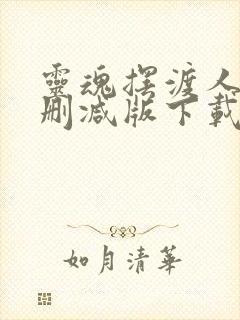 靈魂摆渡人
删减版下載
如月清華